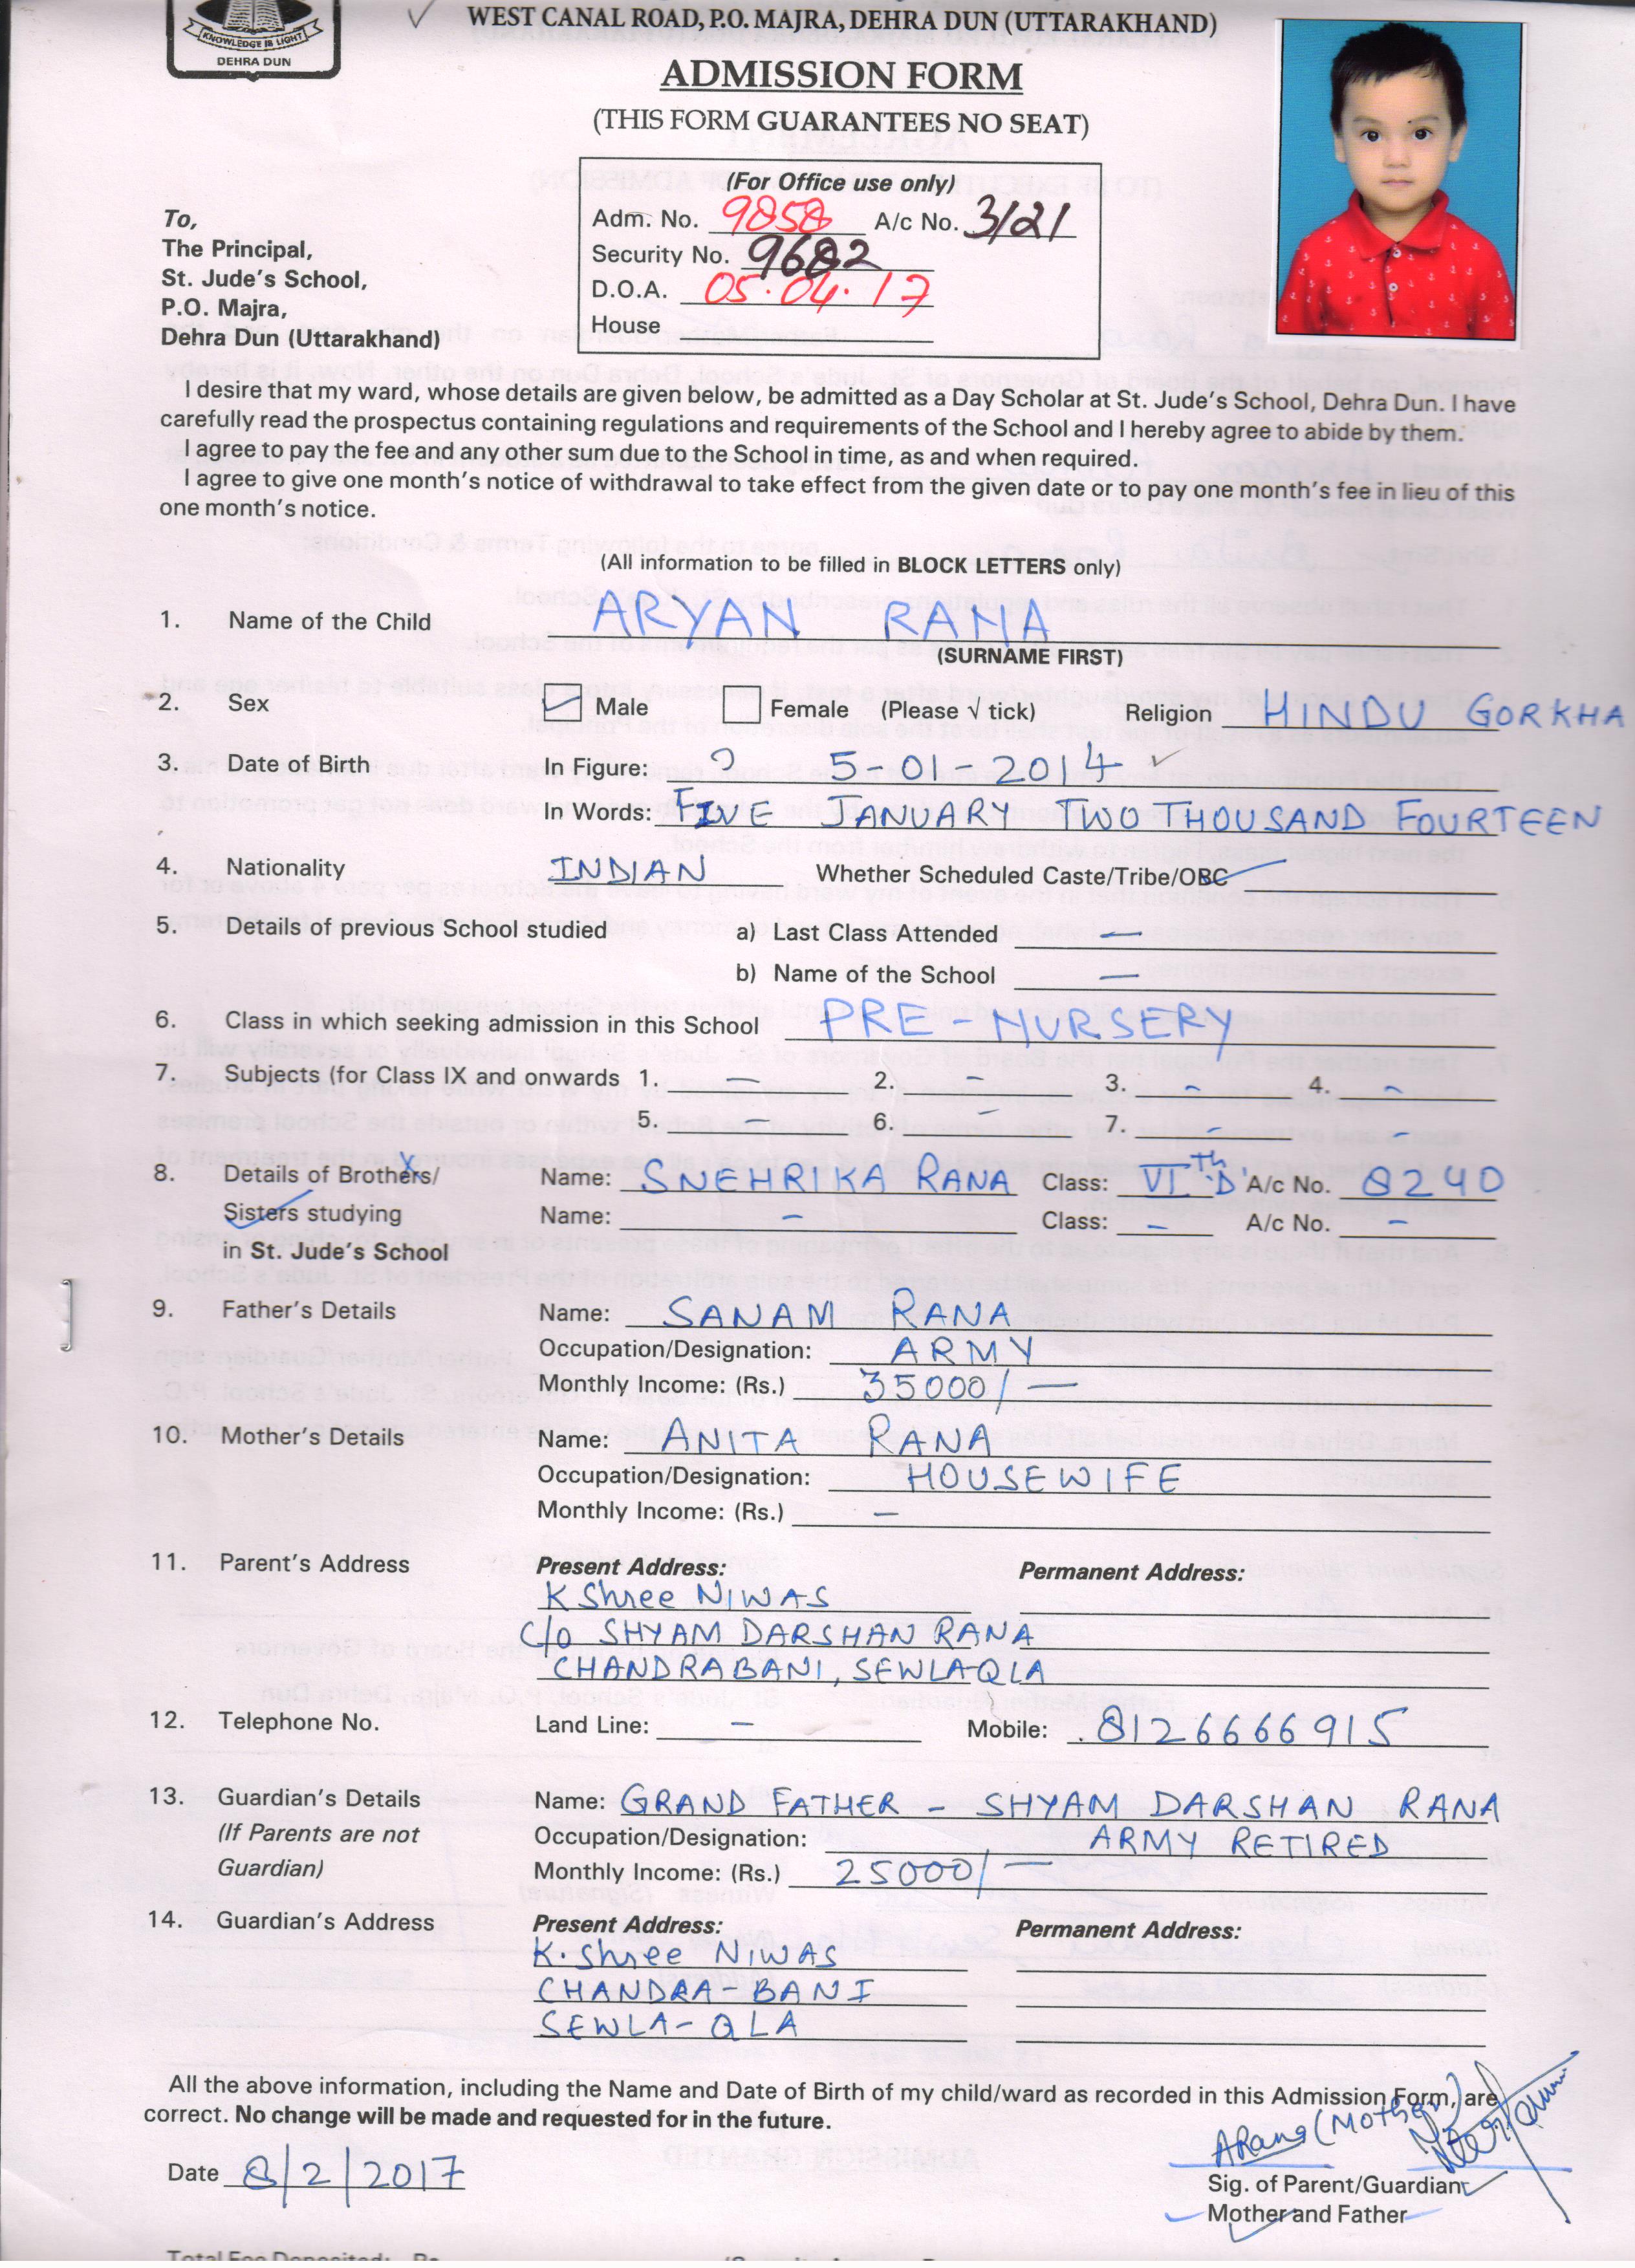 KNOWLEDGE IS LIGHT
DEHRA DUN
WEST CANAL ROAD, P.O. MAJRA, DEHRA DUN (UTTARAKHAND)
ADMISSION FORM
(THIS FORM GUARANTEES NO SEAT)
(For Office use only)
Adm. No. 9858 A/c No. 3/21
Security No. 9682
D.O.A. 05.04.17
House
To,
The Principal,
St. Jude's School,
P.O. Majra,
Dehra Dun (Uttarakhand)
I desire that my ward, whose details are given below, be admitted as a Day Scholar at St. Jude's School, Dehra Dun. I have
carefully read the prospectus containing regulations and requirements of the School and I hereby agree to abide by them.
I agree to pay the fee and any other sum due to the School in time, as and when required.
I agree to give one month's notice of withdrawal to take effect from the given date or to pay one month's fee in lieu of this
one month's notice.
(All information to be filled in BLOCK LETTERS only)
1. Name of the Child ARYAN RANA
(SURNAME FIRST)
2. Sex Male Female (Please √ tick) Religion HINDU GORKHA
3. Date of Birth In Figure: 5-01-2014
In Words: FIVE JANUARY TWO THOUSAND FOURTEEN
4. Nationality INDIAN Whether Scheduled Caste/Tribe/OBC
5. Details of previous School studied a) Last Class Attended —
b) Name of the School —
6. Class in which seeking admission in this School PRE-NURSERY
7. Subjects (for Class IX and onwards 1. — 2. — 3. — 4. —
5. — 6. — 7. — —
8. Details of Brothers/ Name: SNEHRIKA RANA Class: VIth 'D' A/c No. 8240
Sisters studying Name: — Class: — A/c No. —
in St. Jude's School
9. Father's Details Name: SANAM RANA
Occupation/Designation: ARMY
Monthly Income: (Rs.) 35000/—
10. Mother's Details Name: ANITA RANA
Occupation/Designation: HOUSEWIFE
Monthly Income: (Rs.) —
11. Parent's Address Present Address: Permanent Address:
K Shree NIWAS
C/o SHYAM DARSHAN RANA
CHANDRABANI, SEWLA-QLA
12. Telephone No. Land Line: — Mobile: 8126666915
13. Guardian's Details Name: GRAND FATHER - SHYAM DARSHAN RANA
(If Parents are not Occupation/Designation: ARMY RETIRED
Guardian) Monthly Income: (Rs.) 25000/—
14. Guardian's Address Present Address: Permanent Address:
K. Shree NIWAS
CHANDRA-BANI
SEWLA-QLA
All the above information, including the Name and Date of Birth of my child/ward as recorded in this Admission Form, are
correct. No change will be made and requested for in the future.
ARana (Mother)
Date 8/2/2017
Sig. of Parent/Guardian
Mother and Father